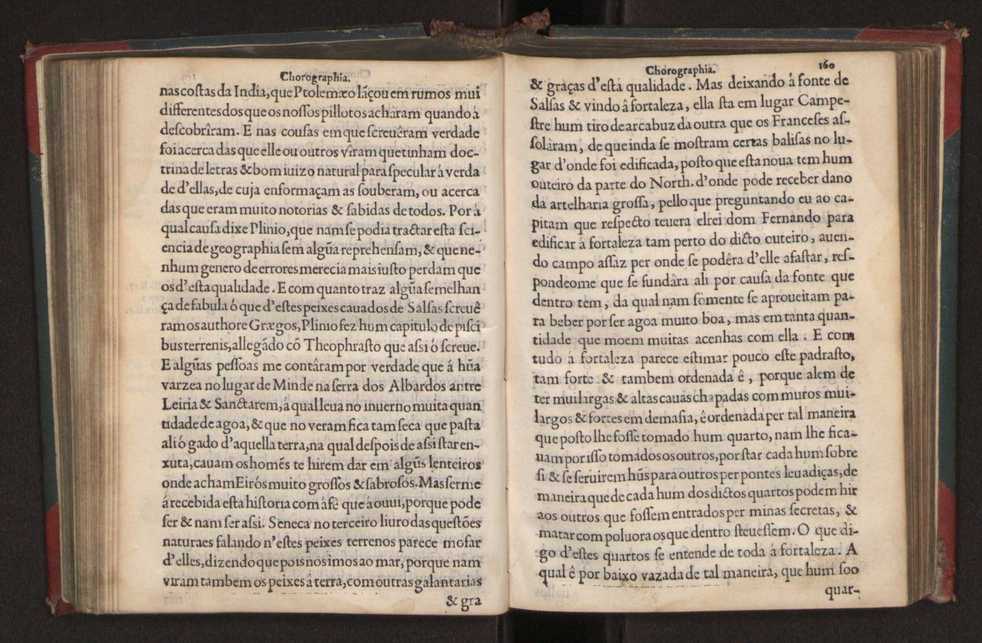 Chorographia.
nas costas da India, que Ptolemæo lãçou em rumos mui
differentes dos que os nossos pillotos acharam quando à
descobrîram. E nas cousas em que screuêram verdade
foi acerca das que elle ou outros vîram que tinham doc-
trina de letras & bom iuizo natural para specular à verda
de d'ellas, de cuja enformaçam as souberam, ou acerca
das que eram muito notorias & sabidas de todos. Por à
qual causa dixe Plinio, que nam se podia tractar esta sci-
encia de geographia sem algũa reprehensam, & que ne-
nhum genero de errores merecia mais iusto perdam que
os d'esta qualidade. E com quanto traz algũa semelhan
ça de fabula ó que d'estes peixes cauados de Salsas screuê
ramos authore Grægos, Plinio fez hum capitulo de pisci
bus terrenis, allegãdo cõ Theophrasto que assi ó screue.
E algũas pessoas me contâram por verdade que á hũa
varzea no lugar de Minde na serra dos Albardos antre
Leiria & Sanctarem, à qual leua no inuerno muita quan
tidade de agoa, & que no veram fica tam seca que pasta
ali ó gado d'aquella terra, na qual despois de assi star en-
xuta, cauam os homẽs te hirem dar em algũs lenteiros
onde acham Eirós muito grossos & sabrosos. Mas serme
á recebida esta historia com à fê que à ouui, porque pode
ser & nam ser assi. Seneca no terceiro liuro das questões
naturaes falando n'estes peixes terrenos parece mofar
d'elles, dizendo que pois nos imos ao mar, porque nam
viram tambem os peixes à terra, com outras galantarias
& gra
Chorographia. 160
& graças d'esta qualidade. Mas deixando â fonte de
Salsas & vindo â fortaleza, ella sta em lugar Campe-
stre hum tiro de arcabuz da outra que os Franceses as-
solàram, de que inda se mostram certas balisas no lu-
gar d'onde foi edificada, posto que esta noua tem hum
outeiro da parte do North. d'onde pode receber dano
da artelharia grossa, pello que preguntando eu ao ca-
pitam que respecto teuera elrei dom Fernando para
edificar à fortaleza tam perto do dicto outeiro, auen-
do campo assaz per onde se podêra d'elle afastar, res-
pondeome que se fundâra ali por causa da fonte que
dentro tem, da qual nam somente se aproueitam pa-
ra beber por ser agoa muito boa, mas em tanta quan-
tidade que moem muitas acenhas com ella: E com
tudo à fortaleza parece estimar pouco este padrasto,
tam forte & tambem ordenada ê, porque alem de
ter mui largas & altas cauas chapadas com muros mui-
largos & fortes em demasia, ê ordenada per tal maneira
que posto lhe fosse tomado hum quarto, nam lhe fica-
uam por isso tomados os outros, por star cada hum sobre
si & se seruirem hũs para outros per pontes leuadiças, de
maneira que de cada hum dos dictos quartos podem hir
aos outros que fossem entrados per minas secretas, &
matar com poluora os que dentro steuessem. O que di-
go d'estes quartos se entende de toda à fortaleza. A
qual ê por baixo vazada de tal maneira, que hum soo
quar-